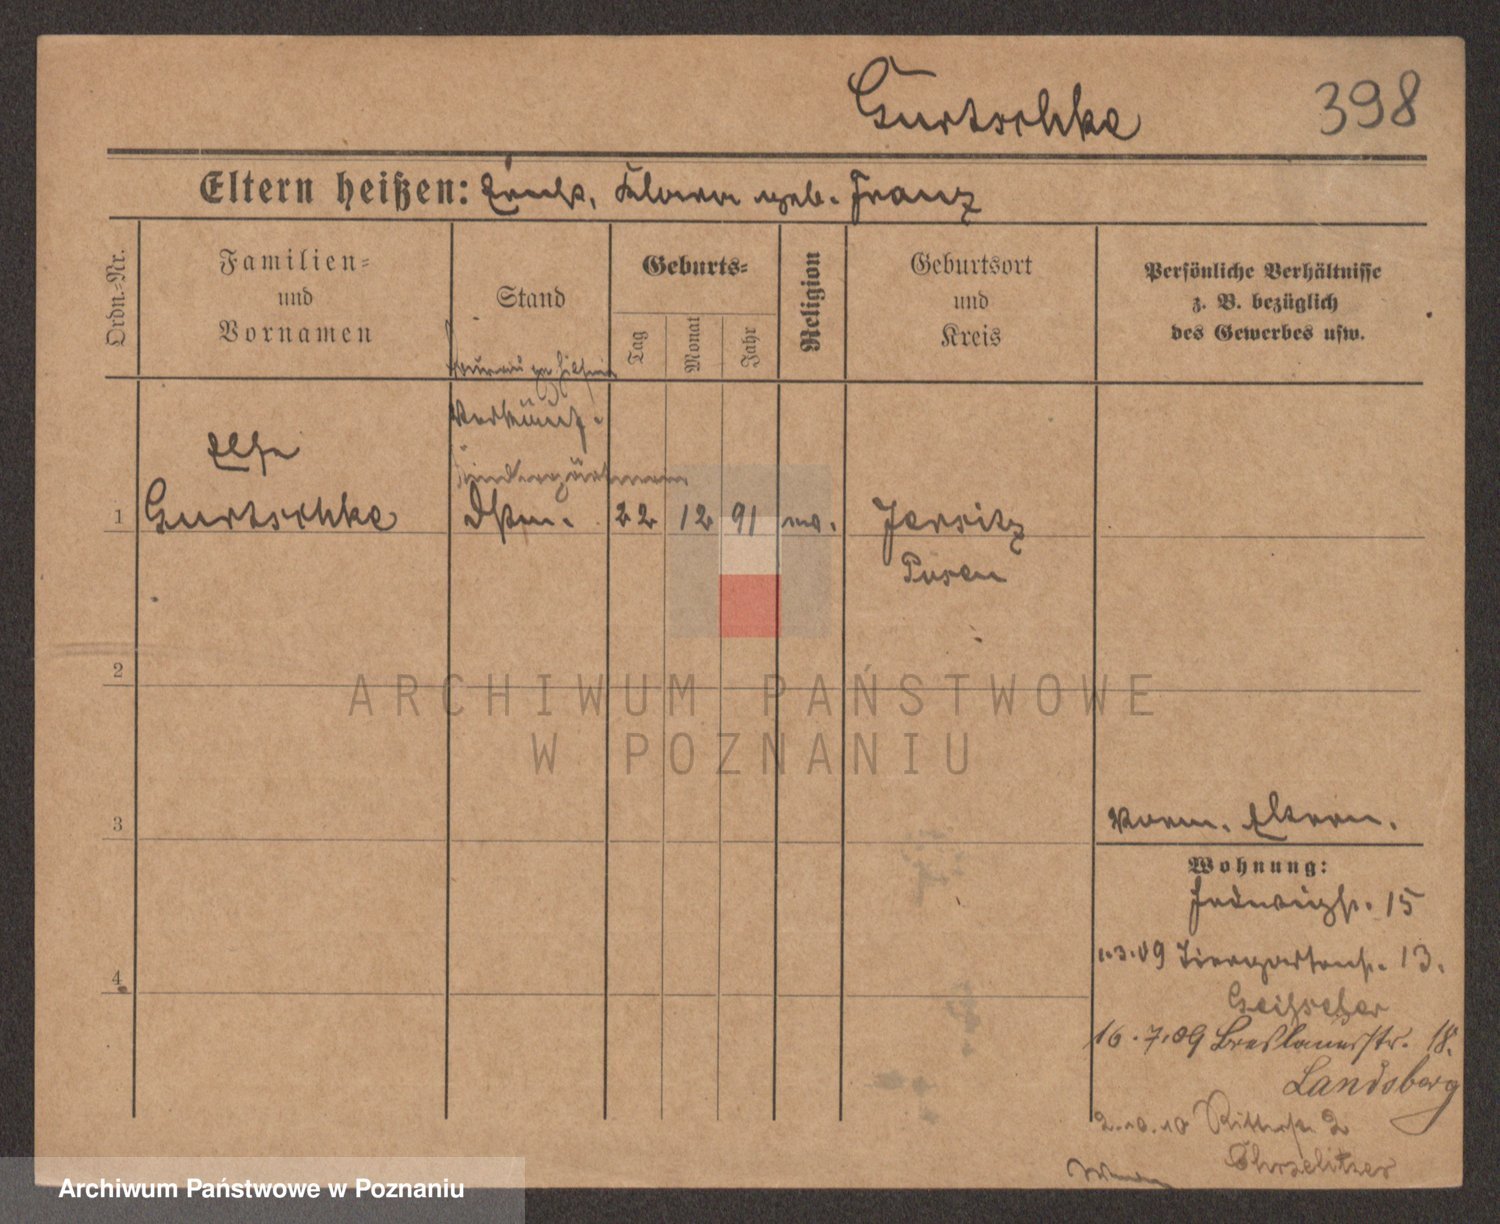 Gurtschke
398
Eltern heißen: Ernst, Klara geb. Franz
Ordn.=Nr.
Familien=
und
Vornamen
Stand
Geburts=
Tag
Monat
Jahr
Religion
Geburtsort
und
Kreis
Persönliche Verhältnisse
z. B. bezüglich
des Gewerbes usw.
Verkäuf.
Kindergärtnerin
Else
1 Gurtschke 22 12 91 Jersitz
Posen
2
ARCHIWUM PAŃSTWOWE
W POZNANIU
3
Eltern.
Wohnung:
15
1.3.09 Tiergartenstr. 13.
16.7.09 Breslauerstr. 18.
Landsberg
2.10.10 Ritterstr. 2
4
Archiwum Państwowe w Poznaniu